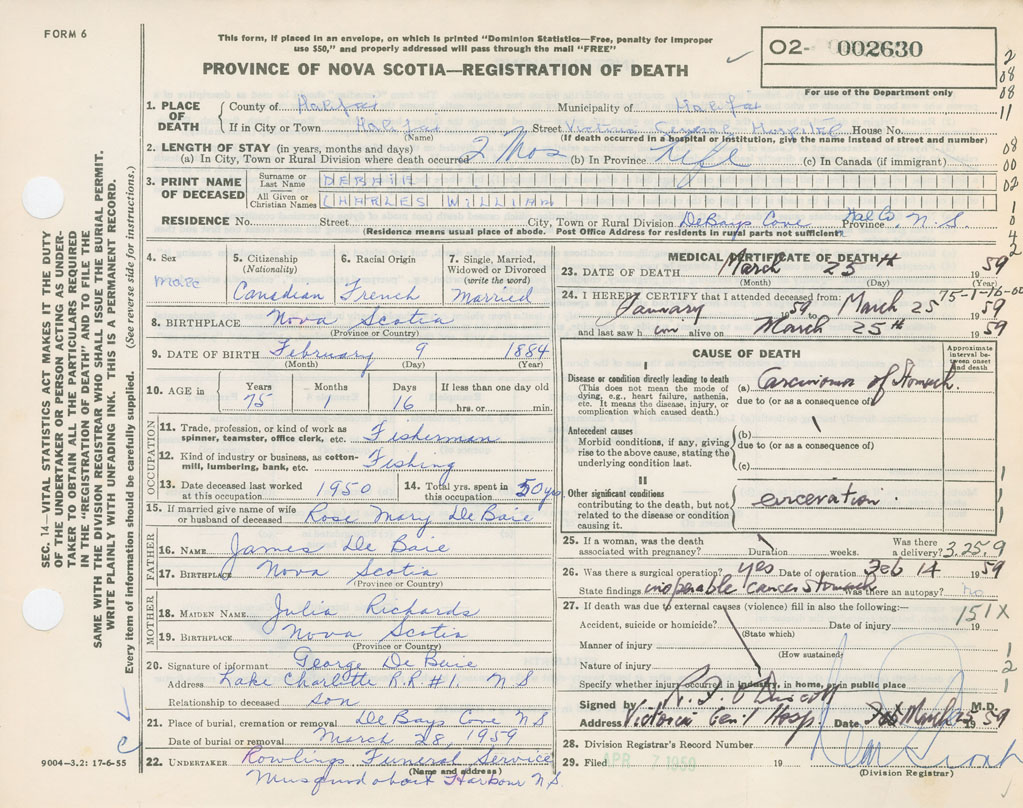 FORM 6
This form, if placed in an envelope, on which is printed "Dominion Statistics—Free, penalty for improper
use $50," and properly addressed will pass through the mail "FREE"
PROVINCE OF NOVA SCOTIA—REGISTRATION OF DEATH
O2- 002630
For use of the Department only
2
08
08
11
08
00
02
1
0
4
2
SEC. 14—VITAL STATISTICS ACT MAKES IT THE DUTY
OF THE UNDERTAKER OR PERSON ACTING AS UNDER-
TAKER TO OBTAIN ALL THE PARTICULARS REQUIRED
IN THE "REGISTRATION OF DEATH" AND TO FILE THE
SAME WITH THE DIVISION REGISTRAR WHO SHALL ISSUE THE BURIAL PERMIT.
WRITE PLAINLY WITH UNFADING INK. THIS IS A PERMANENT RECORD.
Every item of information should be carefully supplied. (See reverse side for instructions.)
1. PLACE OF DEATH County of Halifax Municipality of Halifax
If in City or Town Halifax Street Victoria General Hospital House No.
(Name) (If death occurred in a hospital or institution, give the name instead of street and number)
2. LENGTH OF STAY (in years, months and days)
(a) In City, Town or Rural Division where death occurred 2 Mos (b) In Province Life (c) In Canada (if immigrant)
3. PRINT NAME OF DECEASED Surname or Last Name DEBAIE
All Given or Christian Names CHARLES WILLIAM
RESIDENCE No. Street City, Town or Rural Division DeBays Cove Hal Co. Province N.S.
(Residence means usual place of abode. Post Office Address for residents in rural parts not sufficient)
4. Sex Male
5. Citizenship (Nationality) Canadian
6. Racial Origin French
7. Single, Married, Widowed or Divorced (write the word) Married
8. BIRTHPLACE Nova Scotia
(Province or Country)
9. DATE OF BIRTH February 9 1884
(Month) (Day) (Year)
10. AGE in Years 75 Months 1 Days 16 If less than one day old hrs. or min.
OCCUPATION
11. Trade, profession, or kind of work as spinner, teamster, office clerk, etc. Fisherman
12. Kind of industry or business, as cotton-mill, lumbering, bank, etc. Fishing
13. Date deceased last worked at this occupation 1950 14. Total yrs. spent in this occupation 50 yrs
15. If married give name of wife or husband of deceased Rose Mary DeBaie
FATHER
16. NAME James De Baie
17. BIRTHPLACE Nova Scotia
(Province or Country)
MOTHER
18. MAIDEN NAME Julia Richards
19. BIRTHPLACE Nova Scotia
(Province or Country)
20. Signature of informant George De Baie
Address Lake Charlotte R.R.#1. N S
Relationship to deceased Son
21. Place of burial, cremation or removal DeBays Cove N S
Date of burial or removal March 28, 1959
22. UNDERTAKER Rowlings Funeral Service
(Name and address)
Musquodoboit Harbour N.S.
9004-3.2: 17-6-55
MEDICAL CERTIFICATE OF DEATH
23. DATE OF DEATH March 25th 1959
(Month) (Day) (Year)
75-1-16-00
24. I HEREBY CERTIFY that I attended deceased from:
January 1959 to March 25 1959
and last saw him alive on March 25th 1959
CAUSE OF DEATH
Approximate interval between onset and death
I
Disease or condition directly leading to death
(This does not mean the mode of dying, e.g., heart failure, asthenia, etc. It means the disease, injury, or complication which caused death.)
(a) Carcinoma of Stomach.
due to (or as a consequence of)
Antecedent causes
Morbid conditions, if any, giving rise to the above cause, stating the underlying condition last.
(b)
due to (or as a consequence of)
(c)
II
Other significant conditions
contributing to the death, but not related to the disease or condition causing it.
1
1
25. If a woman, was the death associated with pregnancy? Duration weeks. Was there a delivery? 3.25.9
26. Was there a surgical operation? yes Date of operation Feb 14 1959
State findings inoperable cancer Stomach Was there an autopsy? no
27. If death was due to external causes (violence) fill in also the following:—
151X
Accident, suicide or homicide? Date of injury 19
(State which)
Manner of injury
(How sustained)
Nature of injury
Specify whether injury occurred in industry, in home, or in public place
1
2
1
Signed by M.D.
Address Victoria Gen'l Hosp. Date March 1959
28. Division Registrar's Record Number
29. Filed APR 7 1959 19
(Division Registrar)